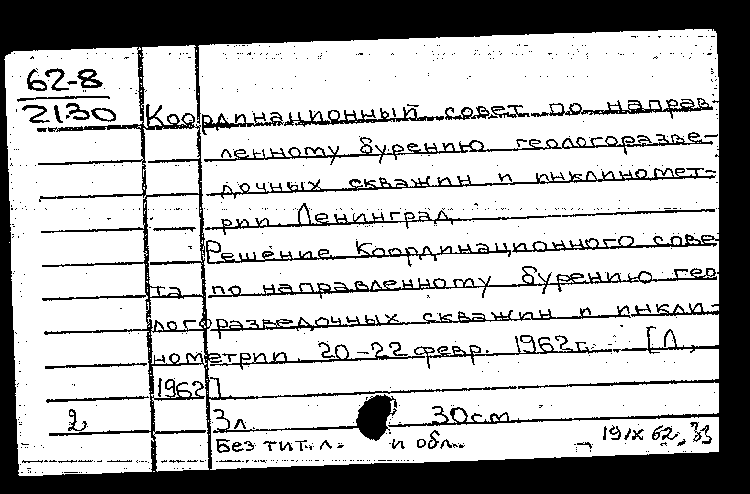 62-8
2130
Координационный совет по направ-
ленному бурению геологоразве-
дочных скважин и инклиномет-
рии. Ленинград.
Решение Координационного сове-
та по направленному бурению гео-
логоразведочных скважин и инкли-
нометрии. 20-22 февр. 1962г. [Л.,
1962].
2, 3л. 30см.
Без тит. л. и обл. 19 IX 62